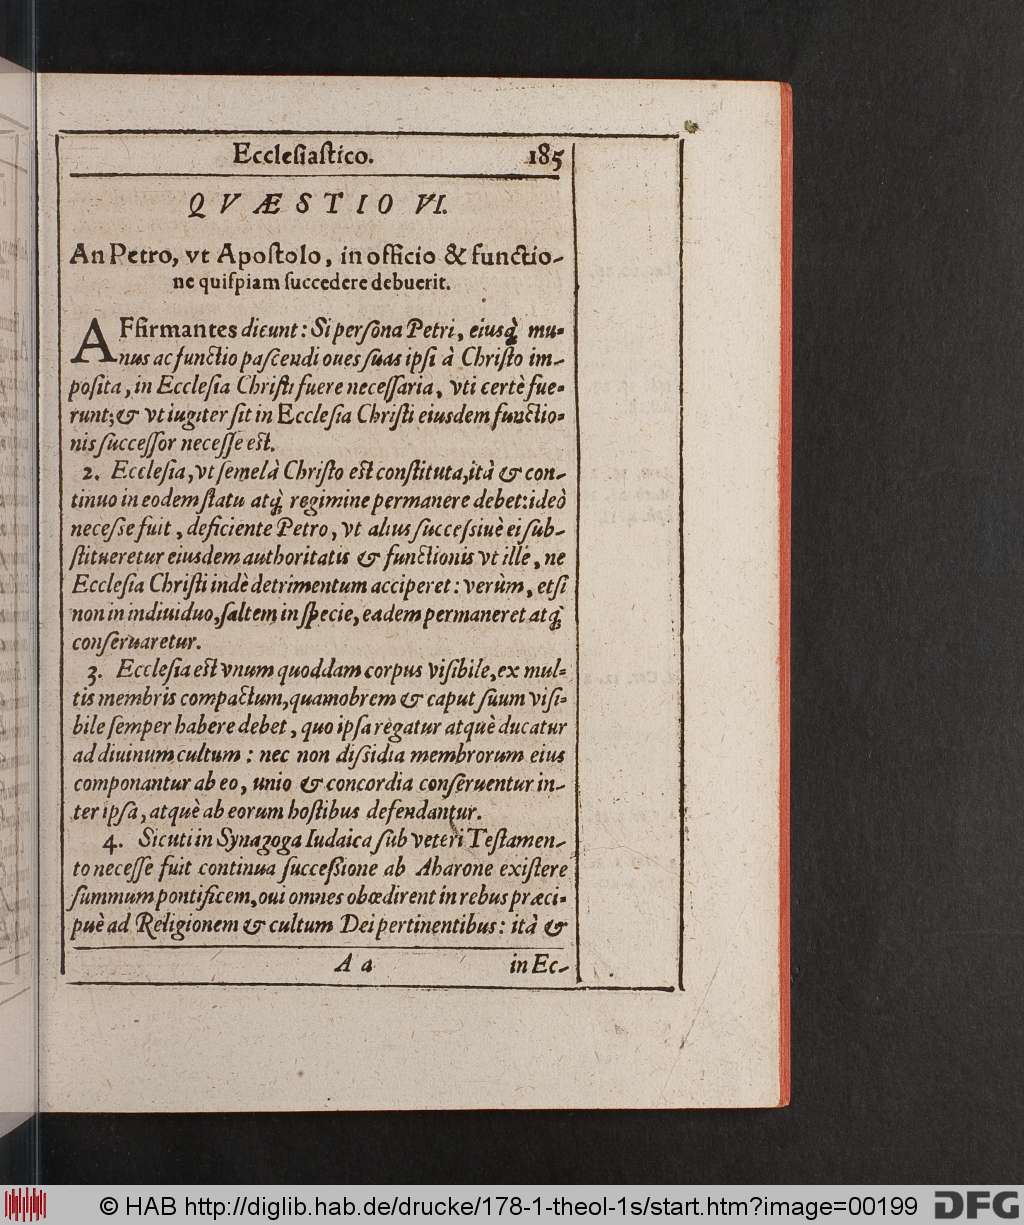 Eccleſiaſtico. 185
QVÆSTIO VI.
An Petro, vt Apoſtolo, in officio & functio-
ne quiſpiam ſuccedere debuerit.
AFfirmantes dicunt: Si perſona Petri, eiusq́; mu-
nus ac functio paſcendi oues ſuas ipſi à Chriſto im-
poſita, in Eccleſia Chriſti fuere neceſſaria, vti certè fue-
runt; & vt iugiter ſit in Eccleſia Chriſti eiusdem functio-
nis ſucceſſor neceſſe eſt.
2. Eccleſia, vt ſemel à Chriſto eſt conſtituta, ità & con-
tinuo in eodem ſtatu atq́; regimine permanere debet: ideò
neceſse fuit, deficiente Petro, vt alius ſucceſsiuè ei ſub-
ſtitueretur eiusdem authoritatis & functionis vt ille, ne
Eccleſia Chriſti indè detrimentum acciperet: verùm, etſi
non in indiuiduo, ſaltem in ſpecie, eadem permaneret atq́;
conſeruaretur.
3. Eccleſia eſt vnum quoddam corpus viſibile, ex mul-
tis membris compactum, quamobrem & caput ſuum viſi-
bile ſemper habere debet, quo ipſa regatur atquè ducatur
ad diuinum cultum: nec non diſsidia membrorum eius
componantur ab eo, unio & concordia conſeruentur in-
ter ipſa, atquè ab eorum hoſtibus defendantur.
4. Sicuti in Synagoga Iudaica ſub veteri Teſtamen-
to neceſſe fuit continua ſucceſsione ab Aharone exiſtere
ſummum pontificem, cui omnes obœdirent in rebus præci-
puè ad Religionem & cultum Dei pertinentibus: ità &
A a in Ec-
© HAB http://diglib.hab.de/drucke/178-1-theol-1s/start.htm?image=00199 DFG